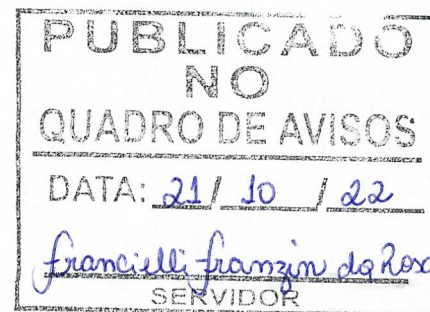 PUBLICADO
NO
QUADRO DE AVISOS
DATA: 21/ 10 / 22
Francielli Franzin da Rosa
SERVIDOR